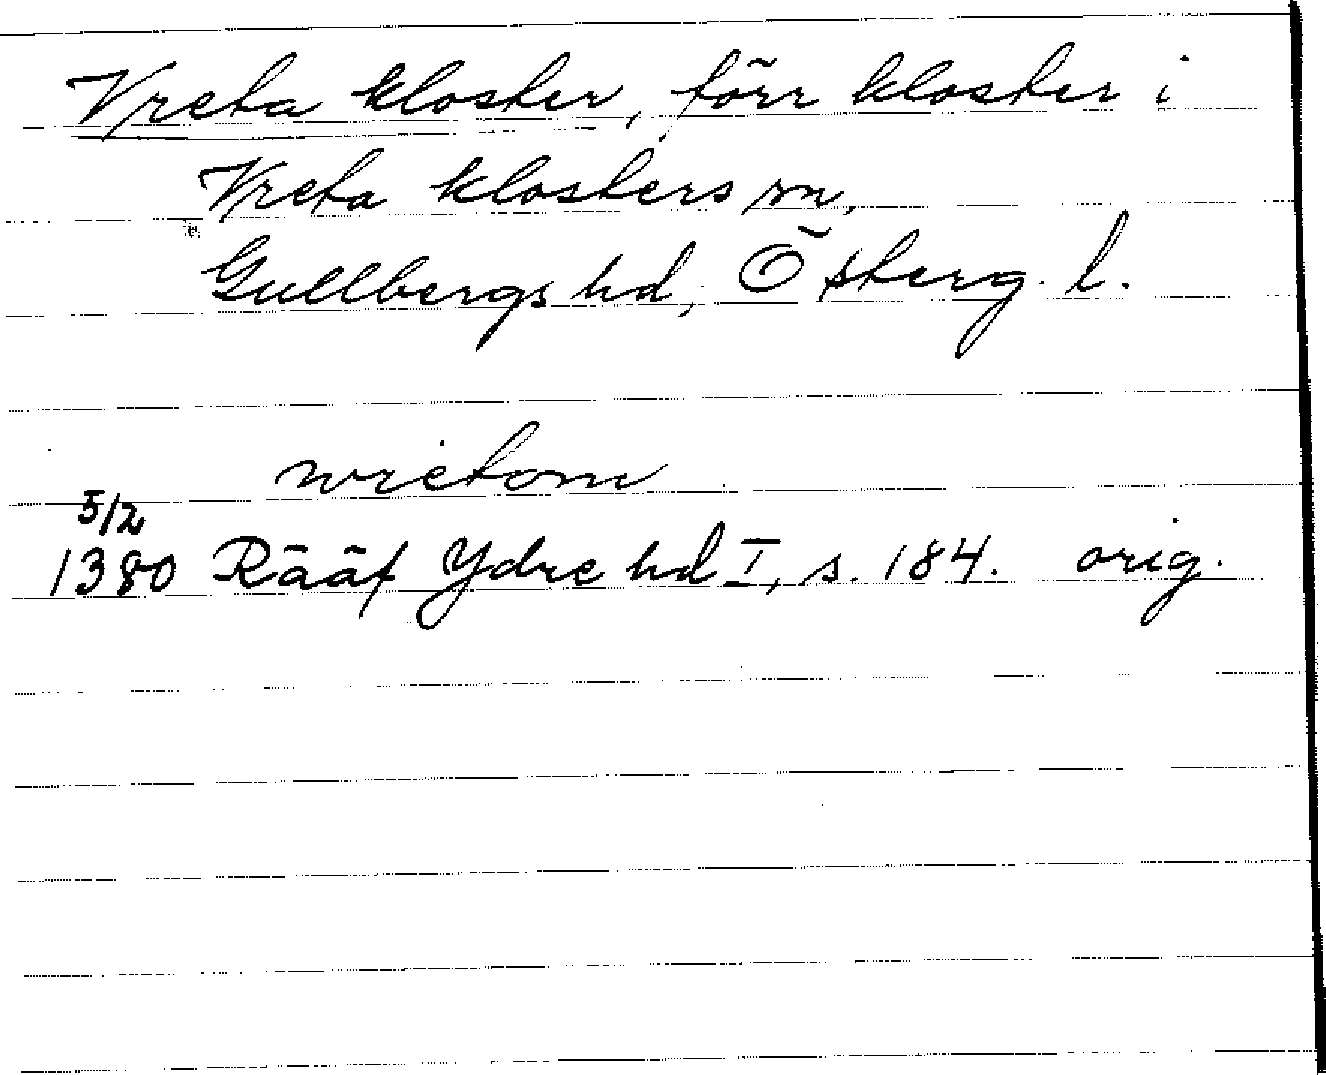 Vreta kloster, förr kloster i
Vreta klosters sn,
Gullbergs hd, Österg. l.
wretom
5/2
1380 Rääf Ydre hd I, s. 184. orig.